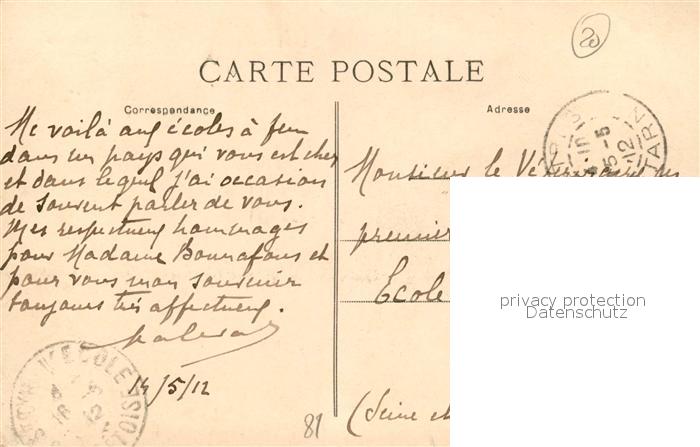 CARTE POSTALE
Correspondance
Me voilà aux écoles à feu
dans un pays qui vous est cher
et dans lequel j'ai occasion
de souvent parler de vous.
Mes respectueux hommages
pour Madame Bonnafous et
pour vous mon souvenir
toujours très affectueux.
14/5/12
Adresse
Monsieur le Vétérinaire
premier
Ecole
(Seine et
privacy protection
Datenschutz
TARN
15-5
12
L'ECOLE
81
20